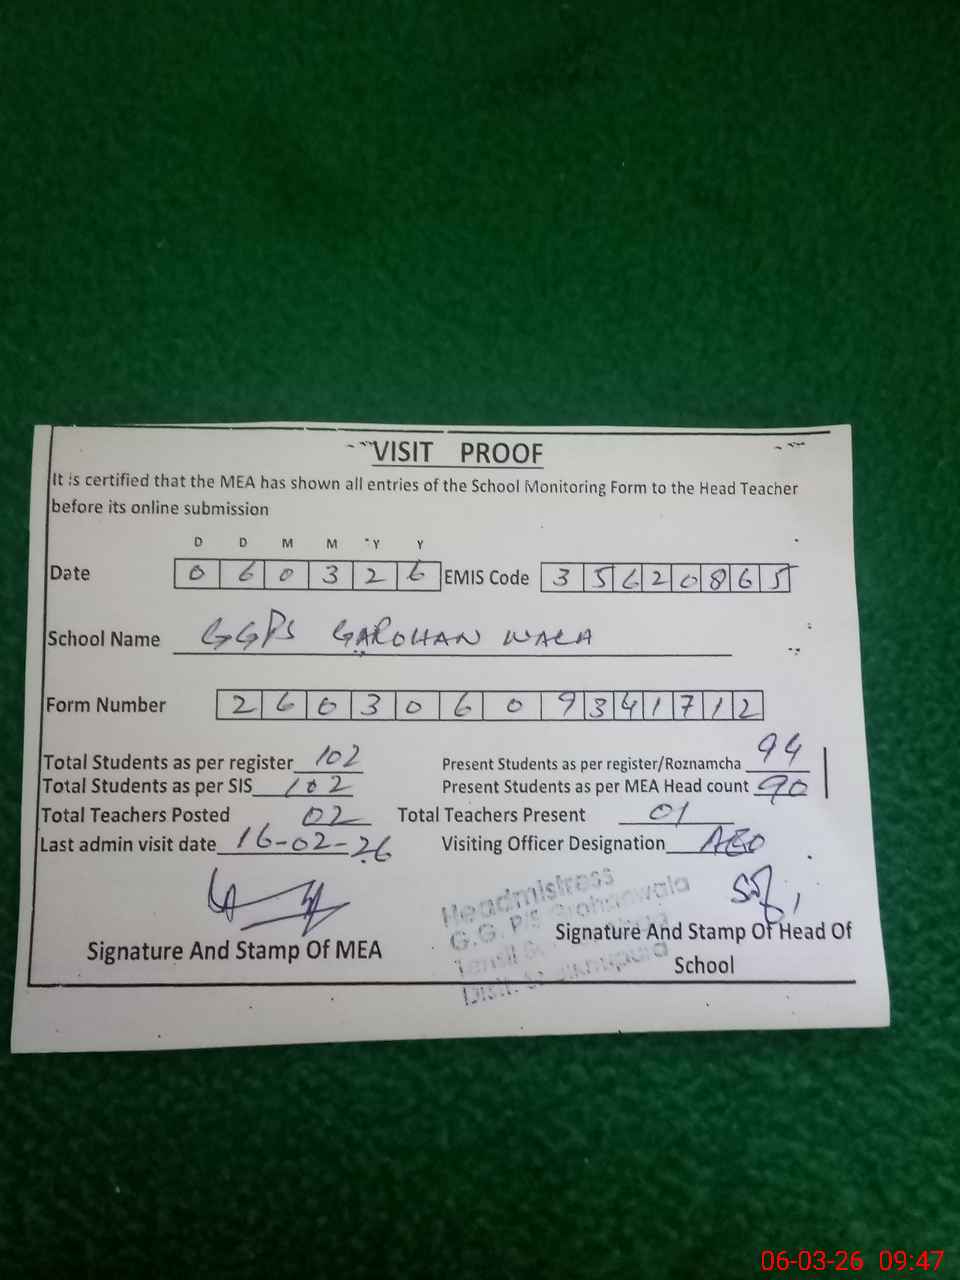 VISIT PROOF
It is certified that the MEA has shown all entries of the School Monitoring Form to the Head Teacher
before its online submission
D D M M Y Y
Date 0 6 0 3 2 6 EMIS Code 3 5 6 2 0 8 6 5
School Name GGPS GAROHAN WALA
Form Number 2 6 0 3 0 6 0 9 3 4 1 7 1 2
Total Students as per register 102 Present Students as per register/Roznamcha 94
Total Students as per SIS 102 Present Students as per MEA Head count 90
Total Teachers Posted 02 Total Teachers Present 01
Last admin visit date 16-02-26 Visiting Officer Designation AEO
Headmistress
G.G. P/S
Signature And Stamp Of MEA Signature And Stamp Of Head Of
School
06-03-26 09:47